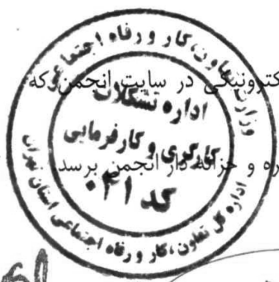 کترونیکی در سایت انجمن که
ره و خزانه دار انجمن برسد
وزارت تعاون، کار و رفاه اجتماعی
اداره تشکلات
کارگری و کارفرمایی
کد ۰۴۱
اداره کل تعاون، کار و رفاه اجتماعی استان تهران